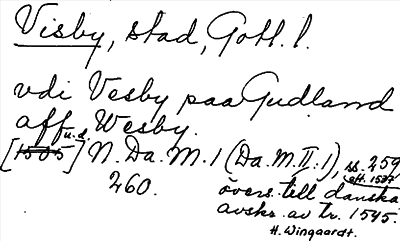 Visby, stad, Gotl. l.
vdi Vesby paa Gudland
aff Wesby.
u.d.
[1505] N. Da. M. 1 (Da. M. II. 1), ss. 259
eft. 1537
260. övers. till danska
avskr. av tr. 1545.
H. Wingaardt.